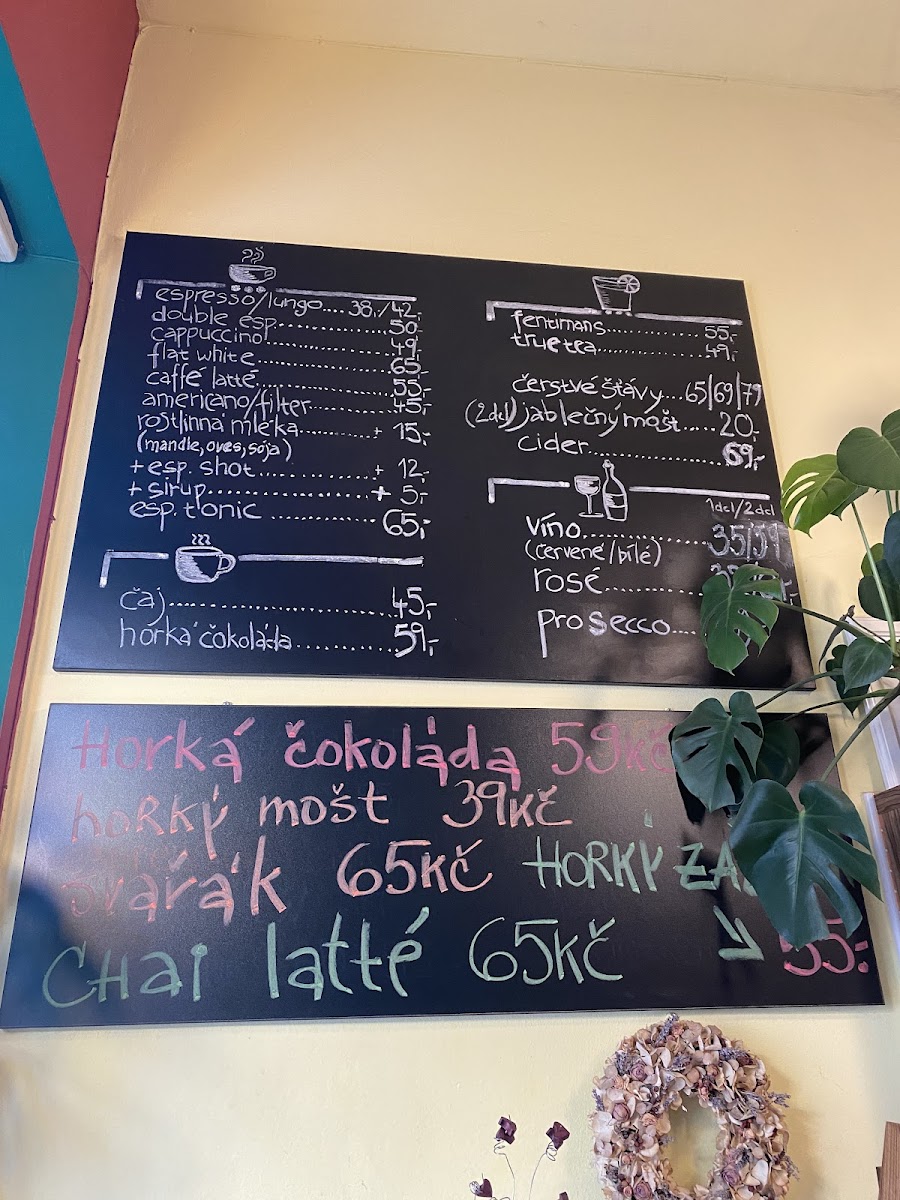 espresso/lungo.... 38,/42,
double esp............... 50,-
cappuccino............... 49,-
flat white............... 65,-
caffé latté.............. 55,-
americano/filter......... 45,-
rostlinná mléka.......... + 15,-
(mandle, oves, sója)
+ esp. shot.............. + 12,-
+ sirup.................. + 5,-
esp. tonic............... 65,-
čaj...................... 45,-
horká čokoláda........... 59,-
fentimans................ 55,-
true tea................. 49,-
čerstvé šťávy.... 65/69/79
(2dcl) jablečný mošt..... 20,-
cider.................... 69,-
1dcl/2dcl
víno..................... 35/59
(červené/bílé)
rosé.....................
prosecco....
Horká čokoláda 59kč
hoRký mošt 39kč
svařák 65kč HORKÝ
CHai latté 65kč 55,-